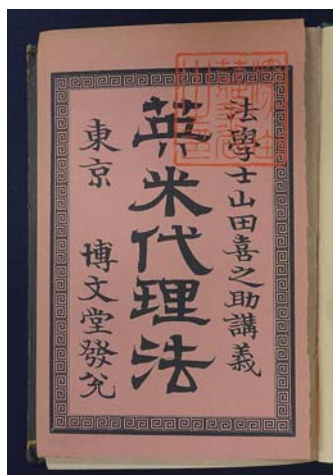 法學士山田喜之助講義
英米代理法
東京 博文堂發兌